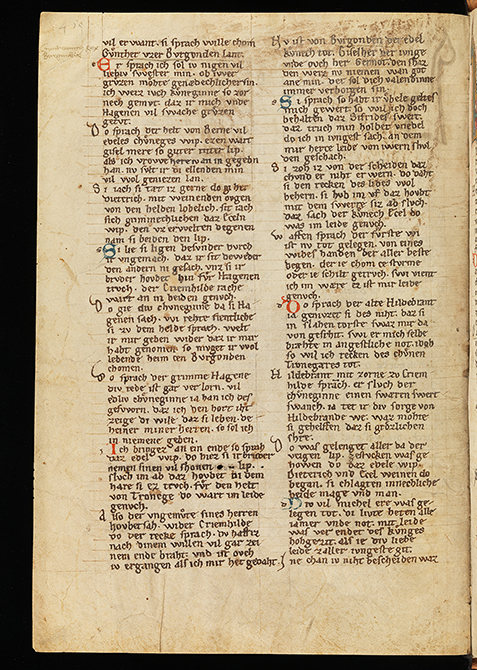 vil er want. si sprach wille chom
Gunther vzer Burgonden lant.
Er sprach ich sol iv nigen vil
liebiv swester min. ob iwer
gruzen mohte genædechlicher sin.
ich weiz iuch kuneginne so zor
nech gemut. daz ir mich unde
Hagenen vil swache gruzen
getut.
Do sprach der helt von Berne vil
edeles chuneges wip. ezen wart
gisel mere so guter riter lip.
als ich vrowe here iv an in gegebn
han. nu sult ir di ellenden min
vil wol geniezen lan.
Si iach si tæt iz gerne do gi her
Dieterich. mit weinenden ovgen
von den helden lobelich. sit rach
sich grimmechlichen daz Eceln
wip. den vz erwelten degenen
nam si beiden den lip.
Si lie si ligen besunder durch
ir vngemach. daz ir sit deweder
den andern ni gesach. vnz si ir
bruder hovbet hin fur Hagenen
truch. der Criemhilde rache
wart an in beiden genuch.
Do gie div chuneginne da si Ha
genen sach. wi rehte fientliche
si zv dem helde sprach. welt
ir mir geben wider daz ir mir
habt genomen. so muget ir wol
lebende heim cen Burgonden
chomen.
Do sprach der grimme Hagene
div rede ist gar verlorn. vil
edliv chuneginne ia han ich des
gesvorn. daz ich den hort iht
zeige di wile daz si leben. de
heiner miner herren. so sol ich
in niemene geben.
Ich bringez an ein ende so sprah
daz edel wip. do hiez si ir bruder
nemen sinen vil shonen lip.
sluch im ab daz hovbet bi dem
hare si ez truch. fur den helt
von Tronege do wart im leide
genuch.
Also der ungemute sines herren
hovbet sah. wider Criemhilde
do der recke sprach. du hastiz
nach dinem willen vil gar zei
nem ende braht. und ist ovch
iv ergangen als ich mir het gedaht.
Nu ist von Burgonden der edel
kunech tot. Giselher der iunge
unde ovch her Gernot. den shaz
den weiz nu niemen wan got
ane min. der sol dich valendinne
immer verborgen sin.
Si sprach so habt ir ubele geltes
mich gewert. so wil ich doch
behalten daz Sifrides swert.
daz truch min holder vriedel
do ich in iungest sach. an dem
mir herce leide von iwern shul
den geschach.
Si zoh iz von der sheiden daz
chund er niht er wern. do daht
si den recken des libes wol
behern. si hub im uf daz hovbt
mit dem swerte siz ab sluch.
daz sach der kunech Ecel do
was im leide genuch.
Waffen sprach der furste wi
ist nu tot gelegen. von eines
wibes handen der aller beste
degen. der ie chom ce sturme
oder ie shilt getruch. swi vient
ich im wære ez ist mir leide
genuch.
Do sprach der alte Hildebrant
ia genuzet si des niht. daz si
in slahen torste swaz mir da
von geshiht. swi er mich selbe
bræhte in angestliche not. idoh
so wil ich rechen des chunen
Tronegæres tot.
Hildebrant mit zorne zu Criem
hilde sprach. er sluch der
chuneginne einen swæren swert
swanch. ia tet ir div sorge von
Hildebrande we. waz mohte
si gehelfen daz si grozlichen
shre.
Do was gelenget aller da der
veigen lip. gestucken was ge
howen do daz edele wip.
Dieterich und Ecel weinen do
began. si chlagten innechliche
beide mage und man.
Div vil michel ere was ge
legen tot. di livte heten alle
iamer unde not. mit leide
was ver endet des kuniges
hohgezit. als ie div liebe
leide zaller iungeste git.
Ine chan iv niht bescheiden waz